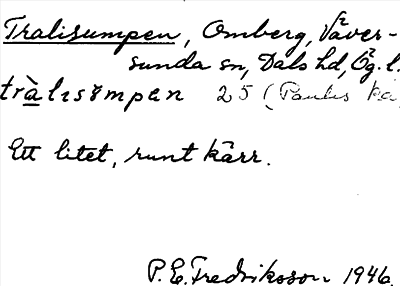 Tralisumpen, Omberg, Väver-
sunda sn, Dals hd, Ög. l.
tràlısømpen 25
Ett litet, runt kärr.
P. E. Fredriksson 1946.